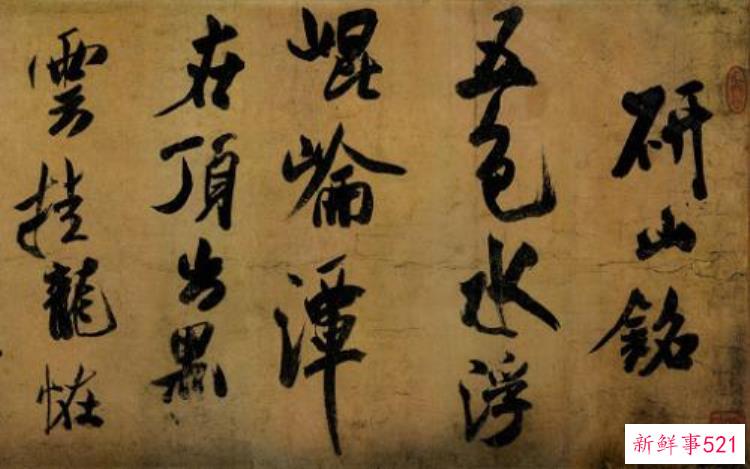 研山銘
五色水浮
崐崘潭
在頂出黑
雲挂龍恠
新鲜事521